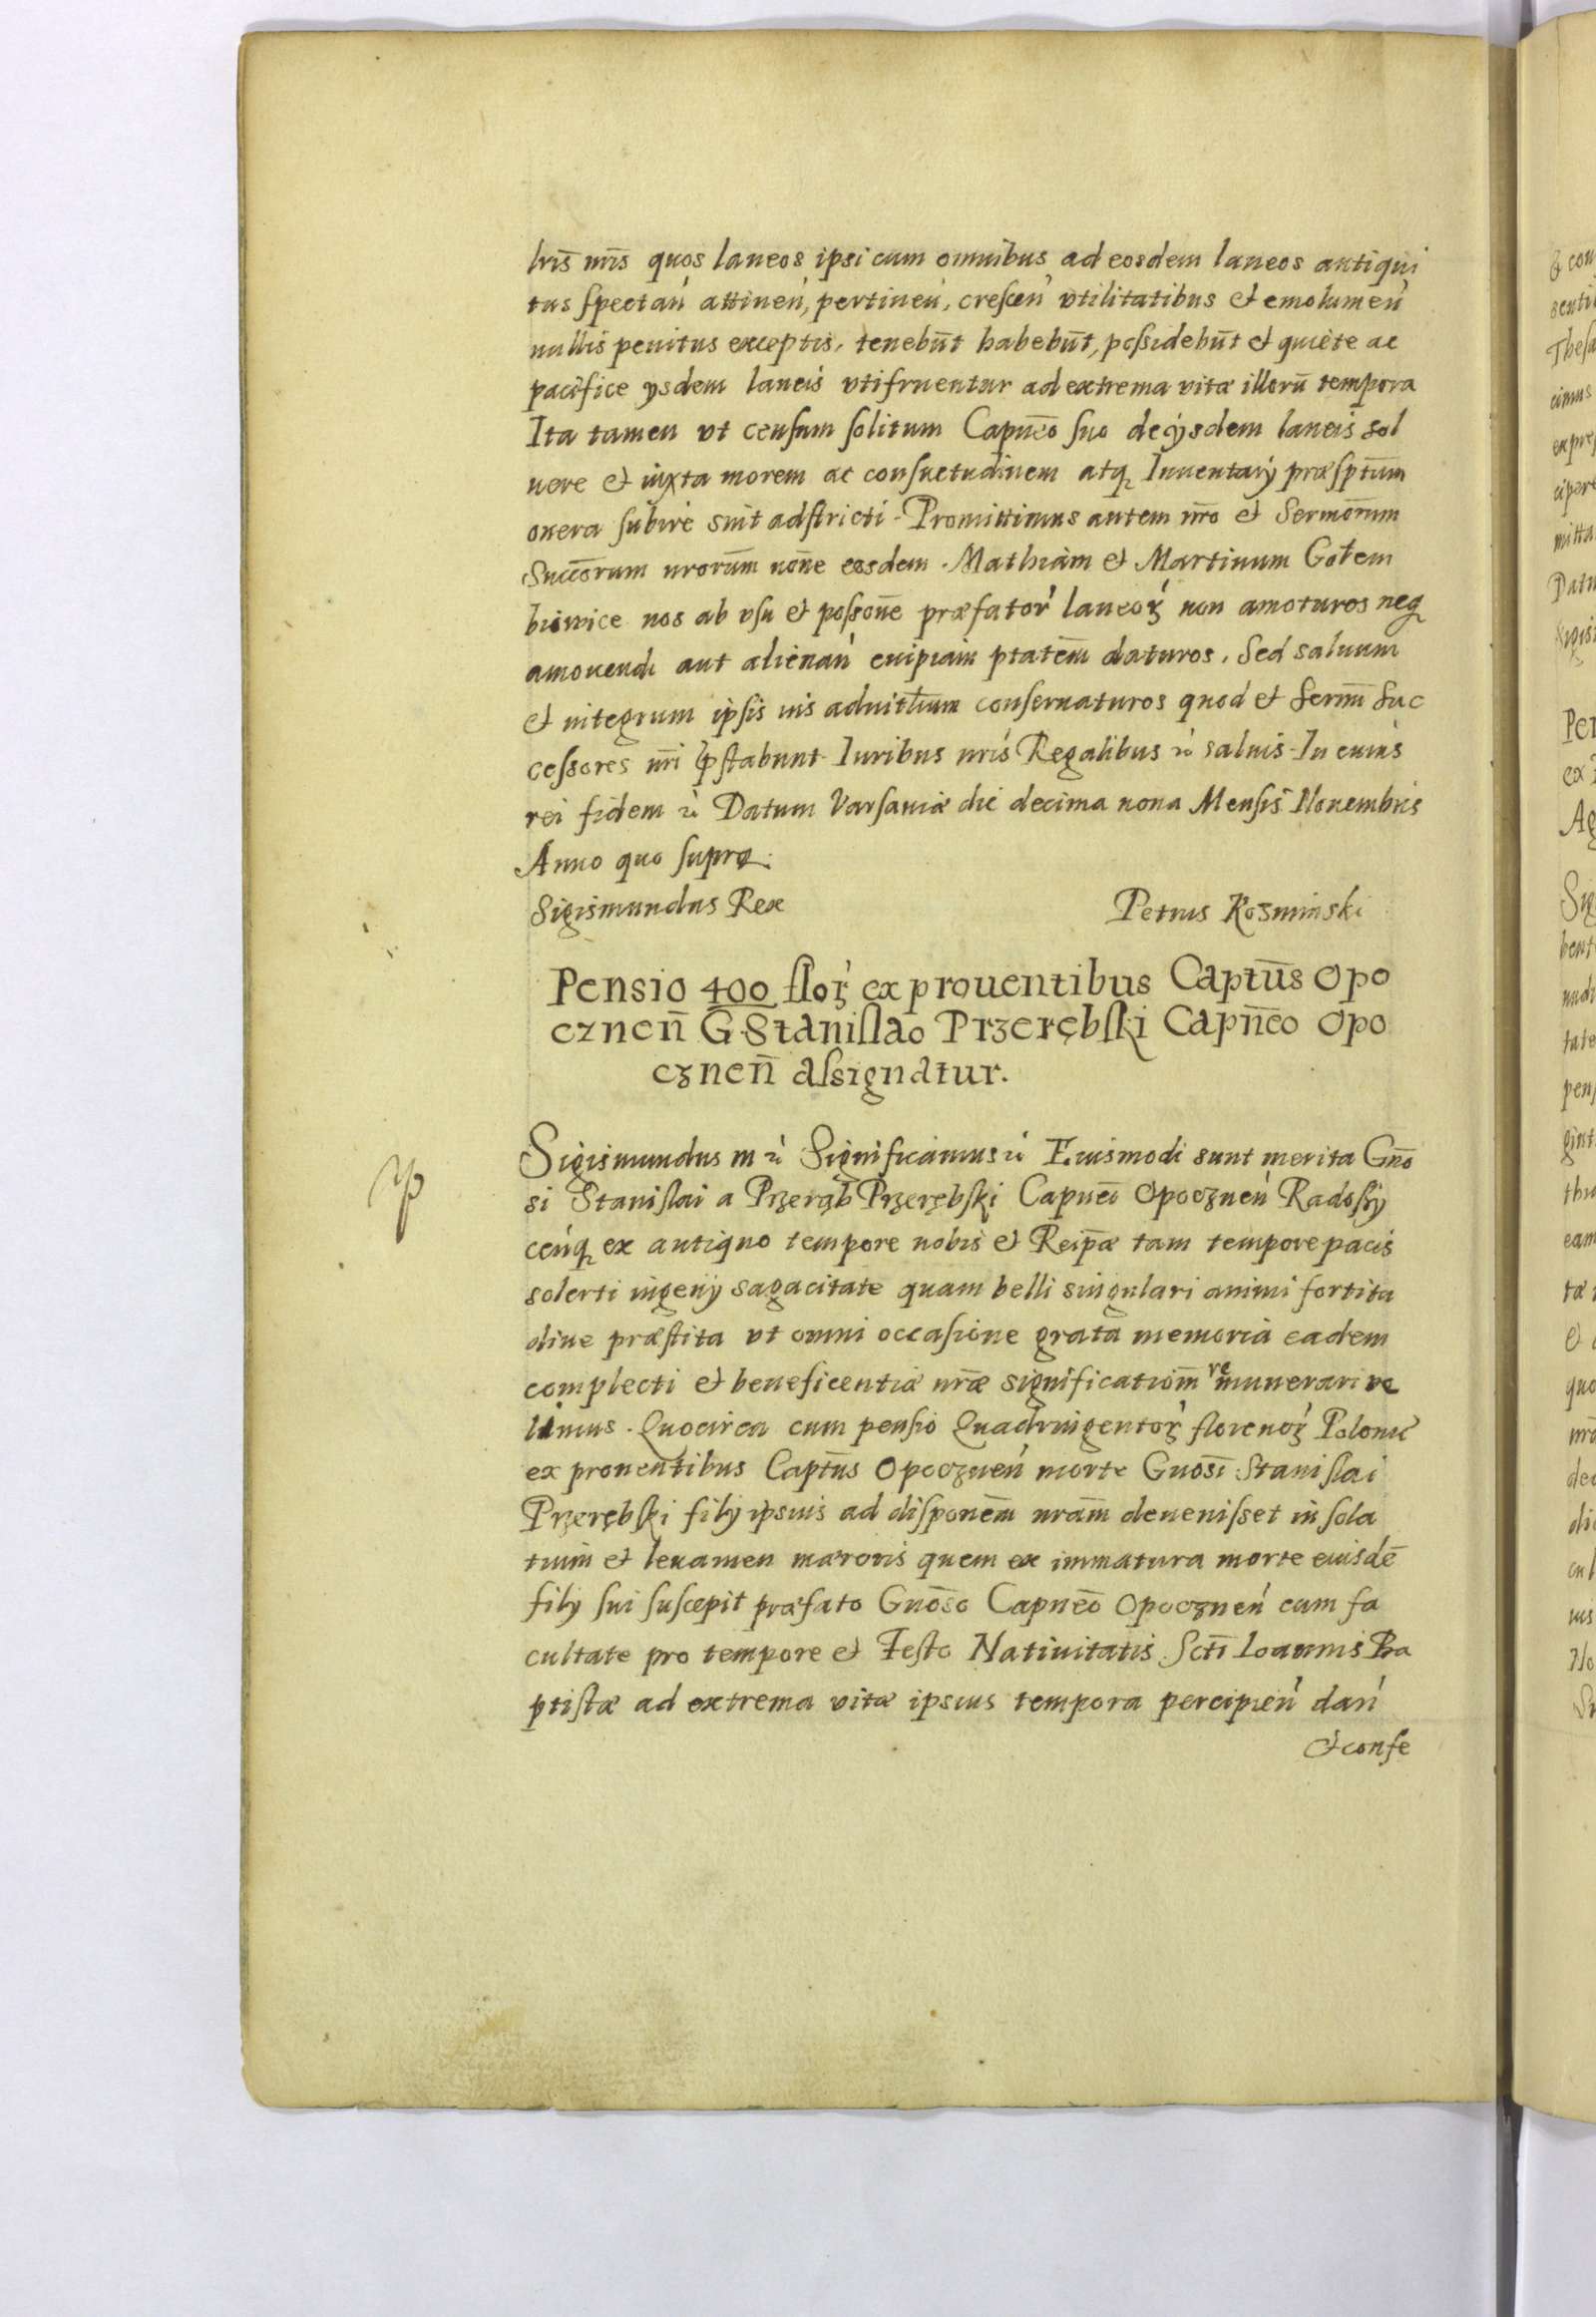 lris nris quos laneos ipsi cum omnibus ad eosdem laneos antiqui
tus spectan attinen, pertinen, crescen vtilitatibus et emolumen
nullis penitus exceptis, tenebūt habebūt, possidebūt et quiete ac
pacifice ysdem laneis vtifruentur ad extrema vitæ illorū tempora
Ita tamen vt censum solitum Capneo suo de ijsdem laneis sol
uere et iuxta morem ac consuetudinem atq Inuentarij præsptum
onera subire sint adstricti. Promittimus autem nro et Sermorum
Succorum nrorum nōne eosdem Mathiam et Martinum Golem
biowice nos ab vsu et possone præfator laneoʒ non amoturos neq
amouendi aut alienan cuipiam ptatem daturos, Sed saluum
et integrum ipsis ius aduitlium conseruaturos quod et Sermi Suc
cessores nri pstabunt Iuribus nris Regalibus &c saluis. In cuius
rei fidem &c Datum Varsauiæ die decima nona Mensis Nouembris
Anno quo supra.
Sigismundus Rex Petrus Kozminski
Pensio 400 floʒ ex prouentibus Captūs Opo
cznen̄ G. Stanislao Przerębski Capn̄eo Opo
cznen̄ assignatur.
Sigismundus III &c Significamus &c Eiusmodi sunt merita Gno
si Stanislai a Przerąb Przerębski Capnei Opocznen Radossy
cenq ex antiquo tempore nobis et Reipæ tam tempore pacis
solerti ingenij sagacitate quam belli singulari animi fortitu
dine præstita vt omni occasione grata memoria eadem
complecti et beneficentiæ nræ significationm remunerari ve
limus. Quocirca cum pensio Quadringentoʒ florenoʒ Polonic
ex prouentibus Captūs Opocznen morte Gnosi Stanislai
Przerębski filij ipsius ad disponem nram deuenisset in sola
tium et leuamen mæroris quem ex immatura morte eiusdē
filij sui suscepit præfato Gnoso Capneo Opocznen cum fa
cultate pro tempore et Festo Natiuitatis Scti Ioannis Ba
ptistæ ad extrema vitæ ipsius tempora percipien dan
et confe